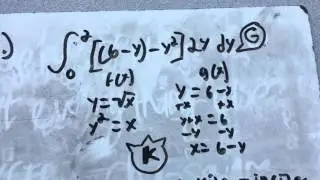 .)
∫₀² [(6-y)-y²] 2y dy G
f(x) g(x)
y=√x y=6-y
y²=x +x +x
y+x=6
-y -y
x=6-y
K